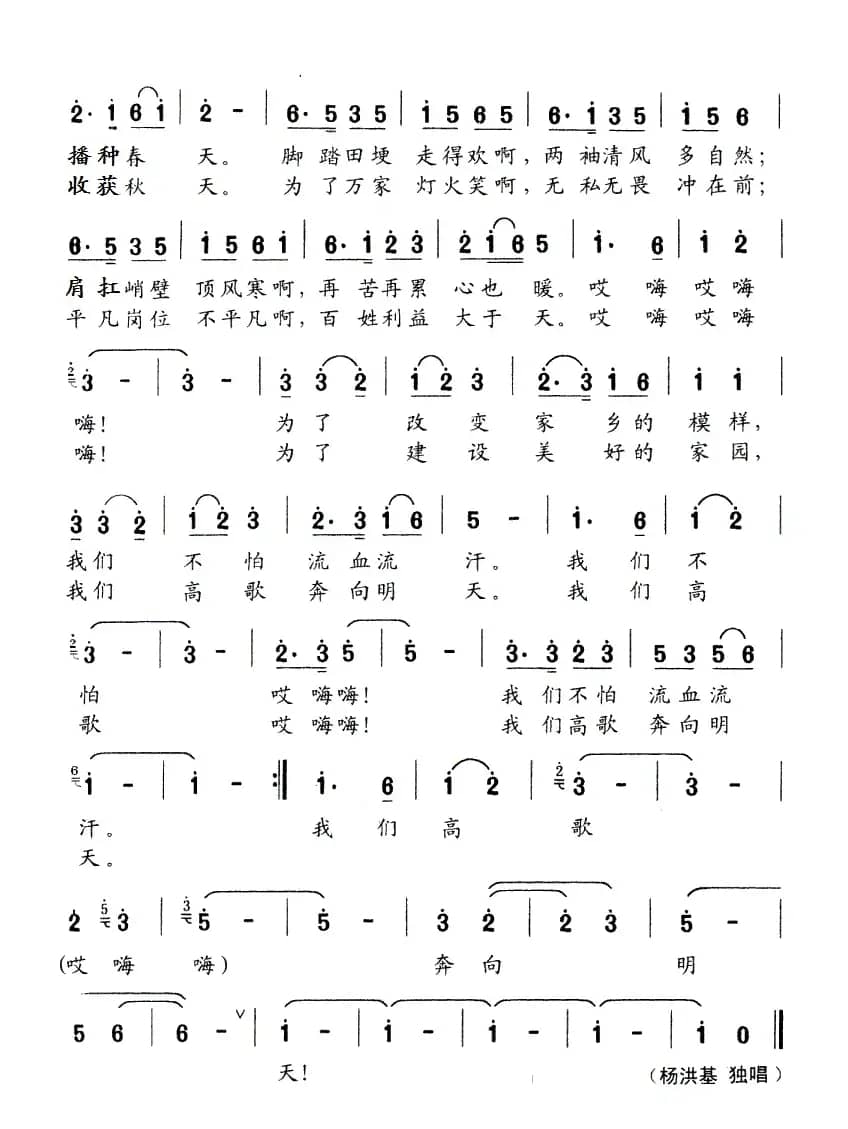 2· 1 6 1 | 2 - | 6· 5 3 5 | 1 5 6 5 | 6· 1 3 5 | 1 5 6 |
播种春 天。 脚 踏田埂 走得欢啊, 两 袖清风 多自然;
收获秋 天。 为 了万家 灯火笑啊, 无 私无畏 冲在前;
6· 5 3 5 | 1 5 6 1 | 6· 1 2 3 | 2 1 6 5 | 1· 6 | 1 2
肩 扛峭壁 顶风寒啊, 再 苦再累 心也 暖。 哎 嗨 哎 嗨
平凡岗位 不平凡啊, 百 姓利益 大于 天。 哎 嗨 哎 嗨
2 3 - | 3 - | 3 3 2 | 1 2 3 | 2· 3 1 6 | 1 1 |
嗨! 为了 改 变 家 乡的 模样,
嗨! 为了 建 设 美 好的 家园,
3 3 2 | 1 2 3 | 2· 3 1 6 | 5 - | 1· 6 | 1 2 |
我们 不 怕 流 血流 汗。 我 们 不
我们 高 歌 奔 向明 天。 我 们 高
2 3 - | 3 - | 2· 3 5 | 5 - | 3· 3 2 3 | 5 3 5 6 |
怕 哎 嗨嗨! 我 们不怕 流血流
歌 哎 嗨嗨! 我 们高歌 奔向明
6 1 - | 1 - :| 1· 6 | 1 2 | 2 3 - | 3 - |
汗。 我 们 高 歌
天。
2 5 3 | 3 5 - | 5 - | 3 2 | 2 3 | 5 - |
(哎 嗨 嗨) 奔 向 明
5 6 | 6 - ∨ | 1 - | 1 - | 1 - | 1 - | 1 0 ‖
天! (杨洪基 独唱)